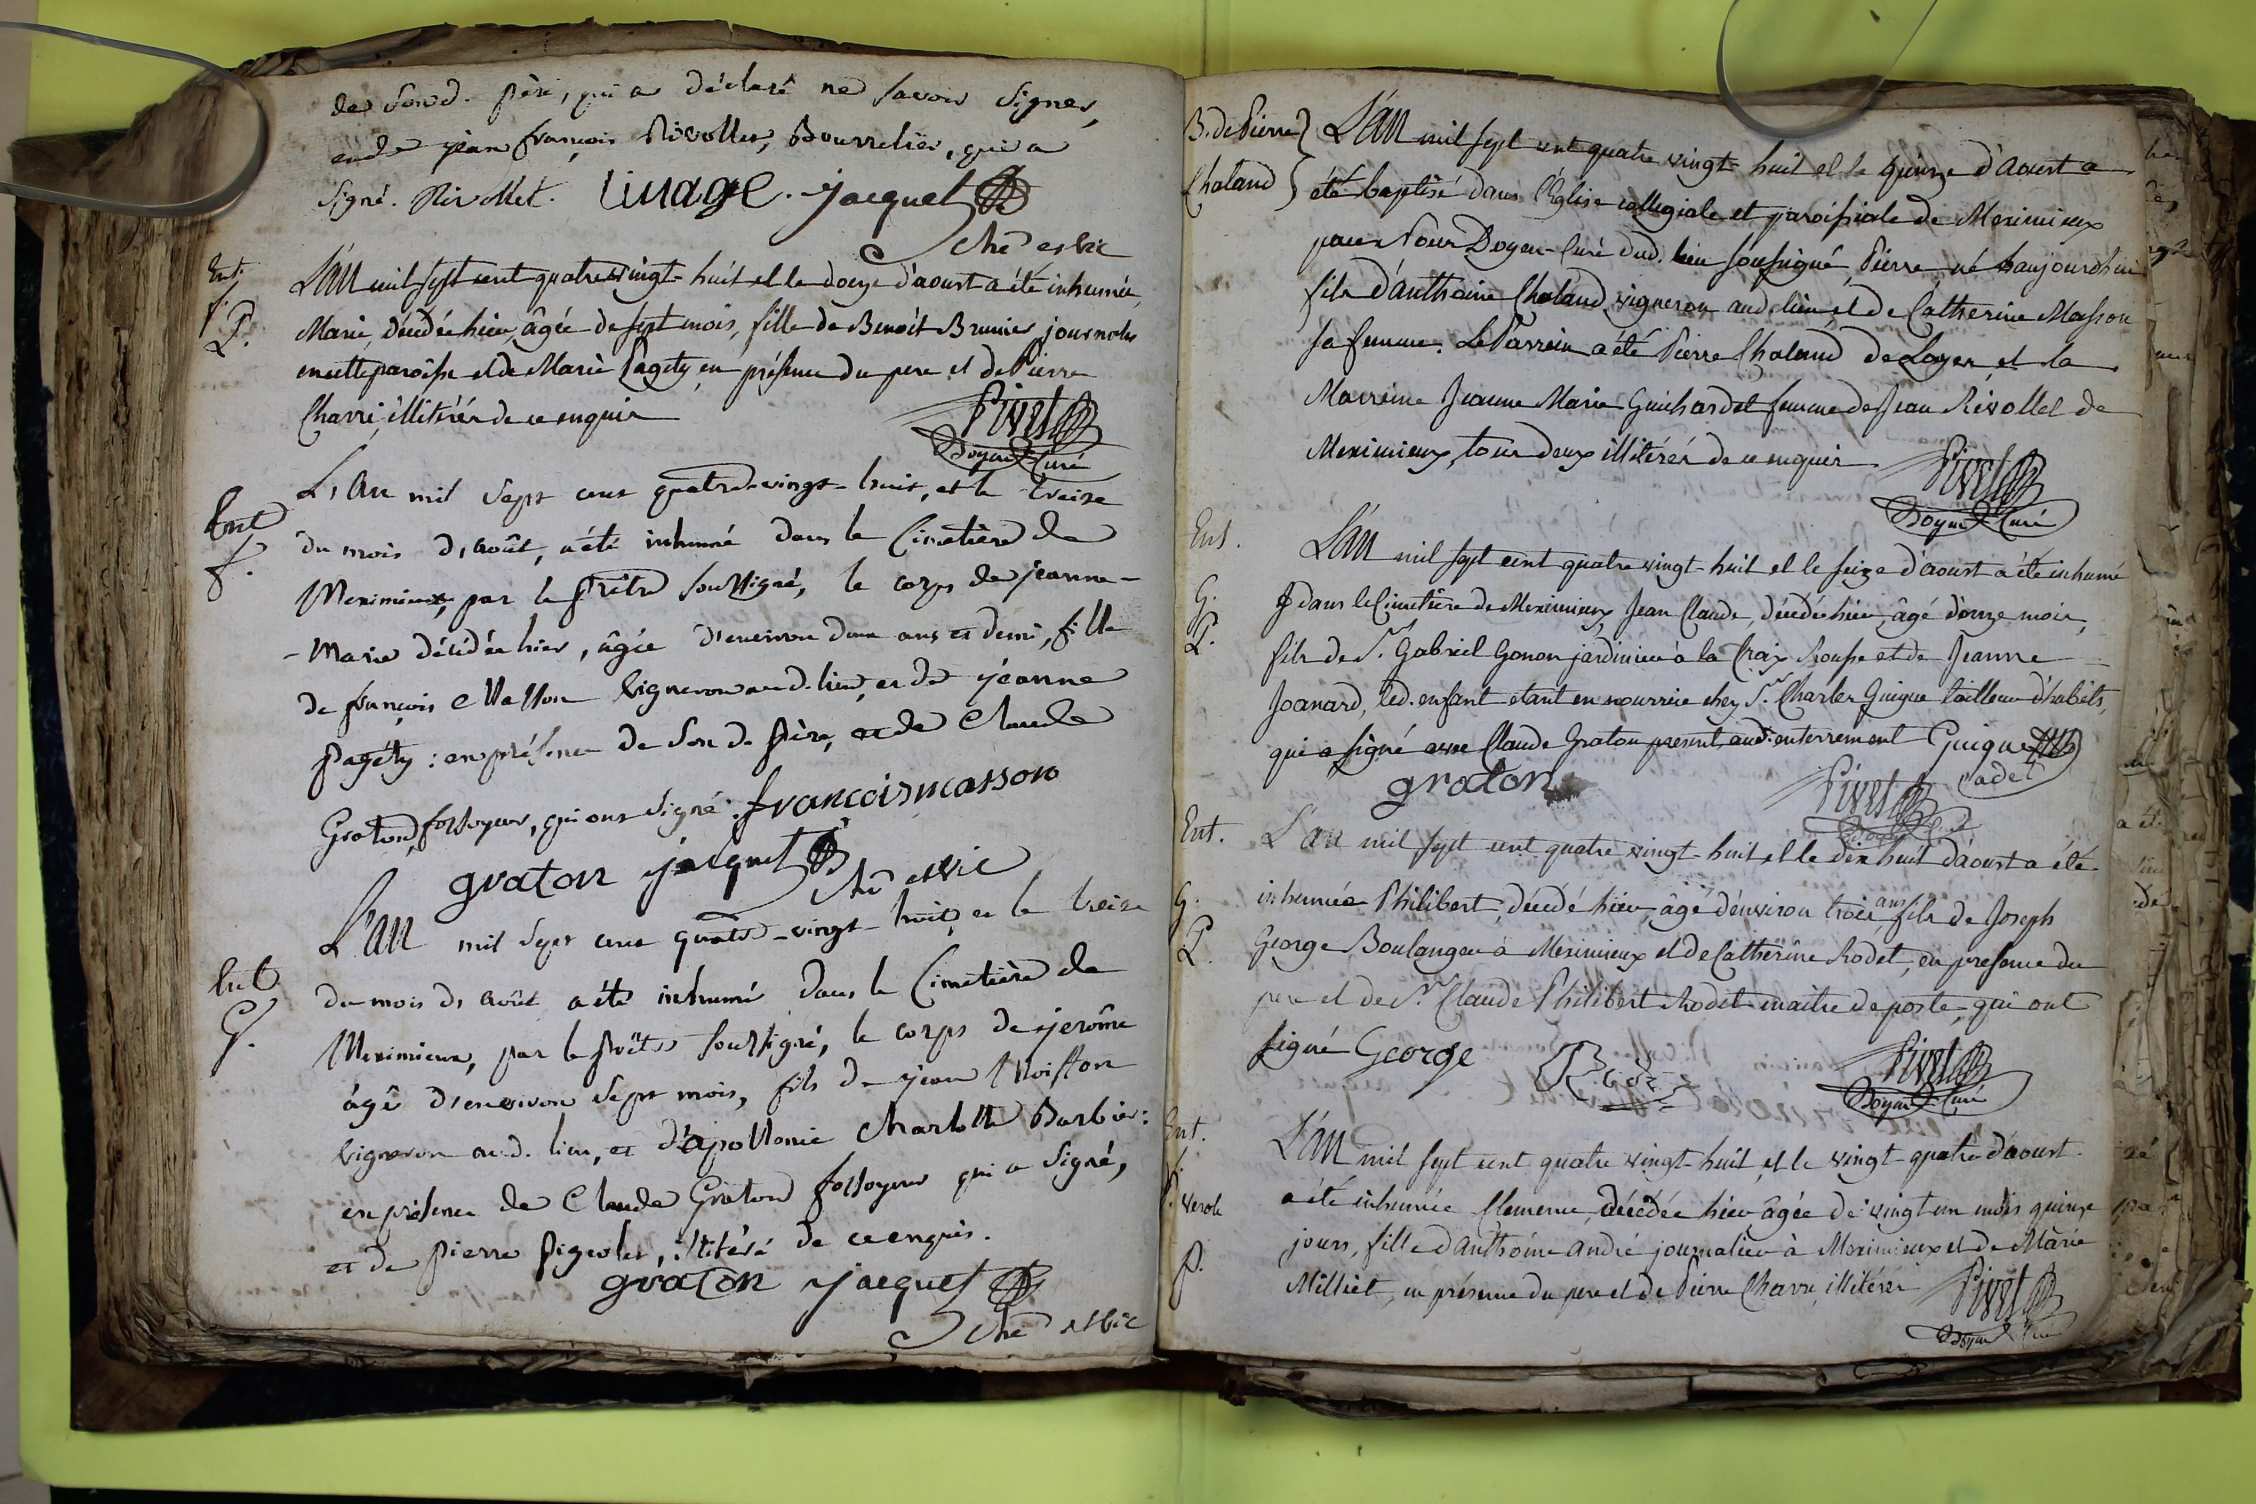 de son d. père, qui a déclaré ne savoir signer,
et de jean françois Rivollet, Bourrelier, qui a
signé. Rivollet. jacquet
che et vic
Ent.
f.
P.
L'an mil sept cent quatre vingt-huit et le douze d'aoust a été inhumée
Marie, décédée hier, âgée de sept mois, fille de Benoit Brunier journalier
en cette paroisse et de Marie Pagéty en présence du pere et de Pierre
Charri, illitérés de ce enquis
Pivet
Doyen Curé
Ent
f.
L'an mil sept cent quatre-vingt-huit, et le treize
du mois d'août, a été inhumé dans le Cimetière de
Meximieux, par le prêtre soussigné, le corps de jeanne-
-Marie décédée hier, âgée d'environ deux ans et demi, fille
de françois Masson vigneron aud. lieu, et de jeanne
pagéty : en présence de son d. père, et de Claude
Graton, fossoyeur, qui ont signé. francoismasson
graton jacquet
che et vic
Ent
G.
L'an mil sept cent quatre-vingt-huit, et le treize
du mois d'août a été inhumé dans le Cimetière de
Meximieux, par le prêtre soussigné, le corps de jerôme
âgé d'environ sept mois, fils de jean Moisson
vigneron aud. lieu, et d'apollonie charlotte Barbier:
en présence de Claude Graton fossoyeur qui a signé,
et de pierre pigeolet, illitéré de ce enquis.
graton jacquet
che et vic
B. de Pierre
Chaland
L'an mil sept cent quatre vingt-huit et le quinze d'aoust a
été baptisé dans l'Église collégiale et paroissiale de Meximieux
par Nous Doyen-Curé dud. lieu soussigné, Pierre né aujourdhui
fils d'Anthoine Chaland vigneron aud. lieu, et de Catherine Masson
sa femme. Le Parrein a été Pierre Chaland de Loyes et la
Marreine Jeanne Marie Guichardet femme de Jean Révollet de
Meximieux, tous deux illitérés de ce enquis
Pivet
Doyen Curé
Ent.
G.
P.
L'an mil sept cent quatre vingt-huit et le seize d'aoust a été inhumé
dans le Cimetière de Meximieux, Jean Claude, décédé hier, âgé d'onze mois,
fils de Sr. Gabriel Gonon jardinier à la Croix Rousse et de Jeanne
Joanard, led. enfant etant en nourrice chez Sr. Charles Guigue tailleur d'habits,
qui a signé avec Claude Graton present aud. enterrement Guigue
cadet
graton
Pivet
Ent.
G.
P.
L'an mil sept cent quatre vingt-huit et le dix huit d'aoust a été
inhumé Philibert, décédé hier, âgé d'environ trois ans, fils de Joseph
George Boulanger à Meximieux et de Catherine Rodet, en presence du
pere et de Sr. Claude Philibert Rodet maitre de poste, qui ont
signé George
Pivet
Doyen Curé
Ent.
f.
verole
P.
L'an mil sept cent quatre vingt-huit et le vingt-quatre d'aoust
a été inhumée Clemence, décédée hier âgée de vingt un mois quinze
jours, fille d'Anthoine André journalier à Meximieux et de Marie
Milliet, en présence du pere et de Pierre Charri, illitérés
Pivet
Doyen Curé